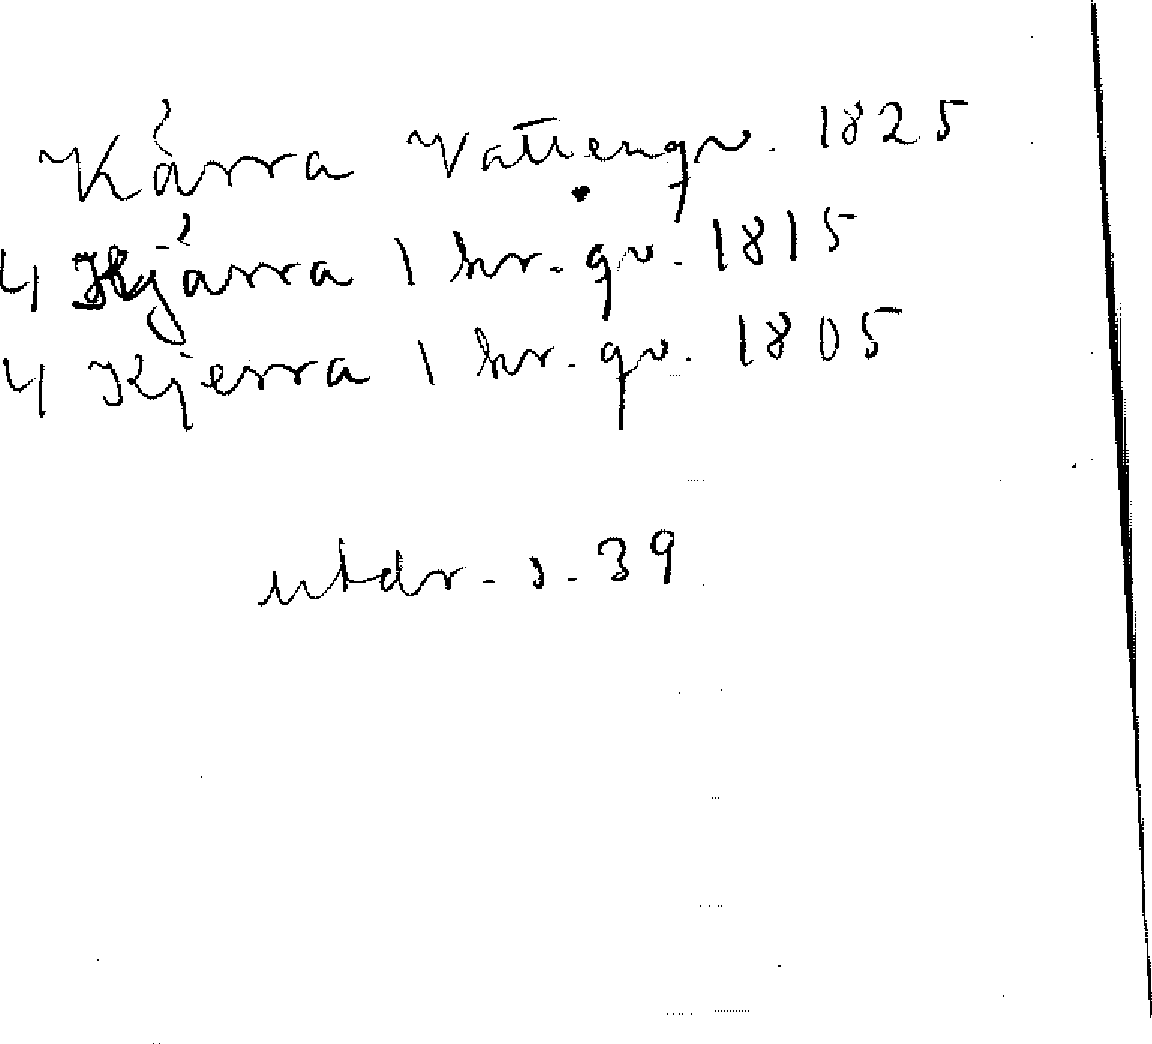 Kärra Vattenqv. 1825
4 Kjärra 1 hr.qv. 1815
4 Kjerra 1 hr.qv. 1805
utdr. s. 39